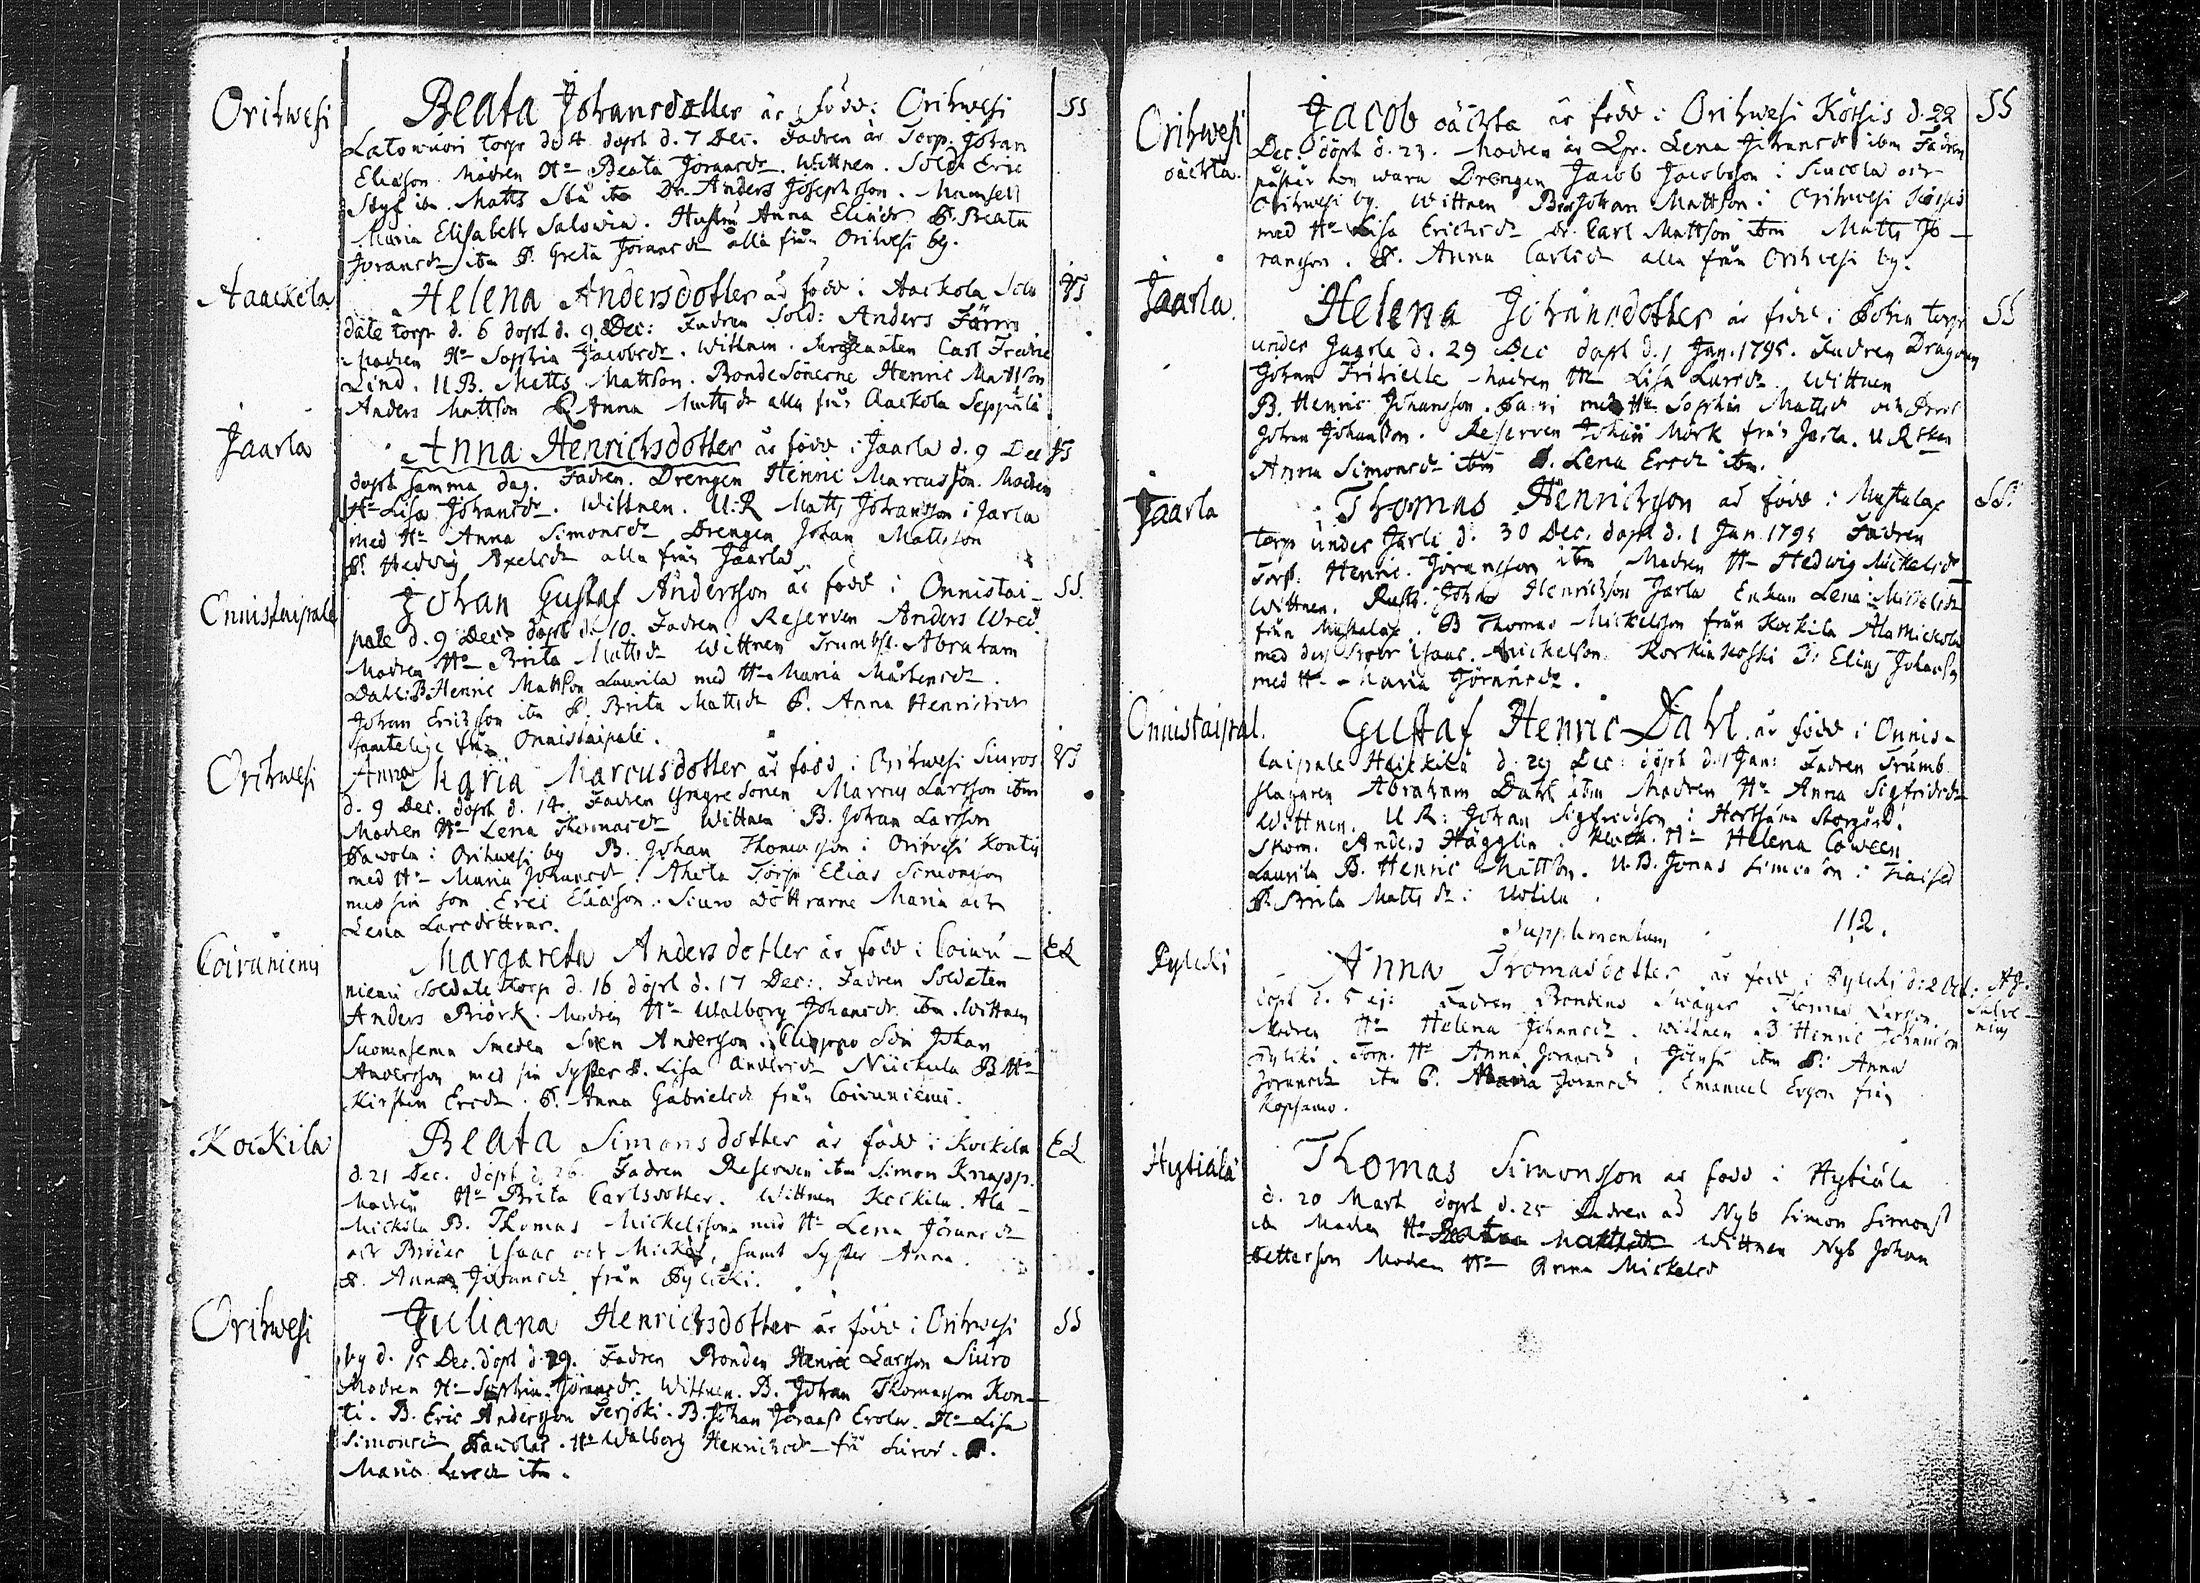 Orihwesi
Beata Johansdotter är född i Orihwesi SS
Latowuori torp d. 4 döpt d. 7 Dec. Fadren är Torp. Johan
Eliason Modren Hu Beata Joransdr. Wittnen. Sold. Eric
Styf ibm Matts Stå ibm Dr. Anders Josephsson. Mamsell
Maria Elisabeth Salowia. Hustru Anna Eliædr P. Beata
Joransdr ibm P. Greta Joransdr alla från Orihwesi by.
Aaackola
Helena Andersdotter är född i Aackola Sol
date torp d. 6 döpt d. 9 Dec: Fadren Sold: Anders Färm
Modren Hu Sophia Jacobsdr. Wittnen. Sergeanten Carl Fredric
Lind. U.B. Matts Mattson. Bondesönerne Henric Mattson
Anders Mattson P. Anna Mattsdr alla från Aackola Seppälä
Jaarla
Anna Henrichsdotter är född i Jaarla d. 9 Dec
döpt samma dag. Fadren. Drengen Henric Marcusson. Modren
Hu Lisa Johansdr. Wittnen. U.R Matts Johansson i Jarla
med Hu Anna Simonsdr Drengen Johan Mattsson
P. Hedvig Axelsdr alla från Jaarla
Onnistaipale
Johan Gustaf Andersson är född i Onnistai- SS.
pale d. 9 Dec. döpt d. 10. Fadren Reserven Anders Wred.
Modren Hu Brita Mattsdr Wittnen Trumbsl. Abraham
Dahl. B. Henric Mattson Laurila med Hu Maria Mårtensdr.
Johan Ericsson ibm P. Brita Mattsdr P. Anna Henricsdr
samtelige från Onnistaipale.
Orihwesi
Anna Maria Marcusdotter är född i Orihwesi Siuros
d. 9 Dec. döpt d. 14. Fadren Yngre Sonen Marcus Larsson ibm
Modren Hu Lena Thomasdr Wittnen B. Johan Larsson
Pawola i Orihwesi by B. Johan Thomasson i Orihvesi Kontis
med Hu Maria Johansdr. Ahola Torp. Elias Simonsson
med sin son Eric Eliason. Siuro Döttrarne Maria och
Lena Larsdöttrar.
Coivuniemi
Margareta Andersdotter är född i Coivu- EL
niemi Soldate torp d. 16 döpt d. 17 Dec: Fadren Soldaten
Anders Biörk. Modren Hu Walborg Johansdr. ibm. Wittnen
Suomasema Smeden Sven Andersson. Son Johan
Andersson med sin Syster P. Lisa Andersdr B. Hu
Kirstin Ersdr. P. Anna Gabrielsdr från Coivuniemi.
Kockila
Beata Simonsdotter är född i Kockila EL
d. 21 Dec. döpt d. 26. Fadren Reserven ibm Simon Knapp.
Modren Hu Brita Carlsdotter. Wittnen Kockila. Ala-
Mickola B. Thomas Mickelsson med Hu Lena Joransdr
och Bröder Isaac och Mickel, samt Syster Anna.
P. Anna Johansdr från Pylicki.
Orihwesi
Juliana Henrichsdotter är född i Orihwesi SS
by d. 15 Dec. döpt d. 29. Fadren Bonden Henric Larsson Siuro
Modren Hu Sophia Joransdr. Wittnen. B. Johan Thomasson Kon-
ti. B. Eric Andersson Terjoki. B. Johan Jöranss Erola. Hu Lisa
Simonsdr Pawolas. Hu Walborg Henrichsdr. frå Siuro. P.
Maria Larsdr ibm.
Orihwesi
oäckta.
Jacob oäckta är född i Orihwesi Körsis d. 22 SS
Dec. döpt d. 23. Modren är Qpr. Lena Johansdr ibm Fadren
påstår hon wara Drengen Jacob Jacobsson i Siucola och
Orihwesi by. Wittnen Bsn Johan Mattson i Orihwesi Körsis
med Hu Lisa Erichsdr Dr. Carl Mattson ibm Matts Jo-
ransson. P. Anna Carlsdr alla från Orihwesi by.
Jaarla.
Helena Johansdotter är född i torp SS
under Jaarla d. 29 Dec döpt d. 1 Jan. 1795. Fadren Dragoun
Johan Modren Hu Lisa Larsdr. Wittnen
B. Henric Johansson. med Hu Sophia Mattsdr och
Johan Johansson. Reserven Johan Mörk från Jarla.
Anna Simonsdr ibm P. Lena Ersdr ibm.
Jaarla
Thomas Henricsson är född i Mustalax SS.
torp under Jarla d. 30 Dec. döpt d. 1 Jan 1795 Fadren
Torp. Henric Joransson ibm Modren Hu Hedwig Mickelsdr
Wittnen. Johan Henricsson Jarla Enkan Lena Mickelsdr
från Mustalax. B Thomas Mickelsson från Kockila Ala Mickola
med dess Broder Isaac Mickelson. Korkiakoski Elias Johansson
med Hu Maria Joransdr.
Onnistaipal.
Gustaf Henric Dahl är född i Onnis-
taipale Heickilä d. 29 Dec: döpt d. 1 Jan: Fadren Trumb
slagaren Abraham Dahl ibm Modren Hu Anna Sigfridsdr
Wittnen. U.R: Johan Sigfridsson i Storgård.
Skom. Anders Hägglin. Hu Helena Coween
Laurila B. Henric Mattson. U.B. Jonas Simonson i
P. Brita Mattsdr i Uotila
Supplementum 112.
Pylicki
Anna Tromasdotter är född i Pylicki d: 2 Oct.
döpt d. 5 ej: Fadren Bondens Swåger Thomas Larsson.
Modren Hu Helena Johansdr. Wittnen B Henric Johanson
Pylicki. Torp. Hu Anna Joransdr, ibm P. Anna
Joransdr ibm P. Maria Joransdr. Emanuel Ersson från
Kopsamo.
Hytiälä
Thomas Simonsson är född i Hytiälä
d. 20 Mart döpt d. 25 Fadren är Nyb Simon Simonss
ibm Modren Hu Wittnen Nyb Johan
Petterson Modren Hu Anna Mickelsd